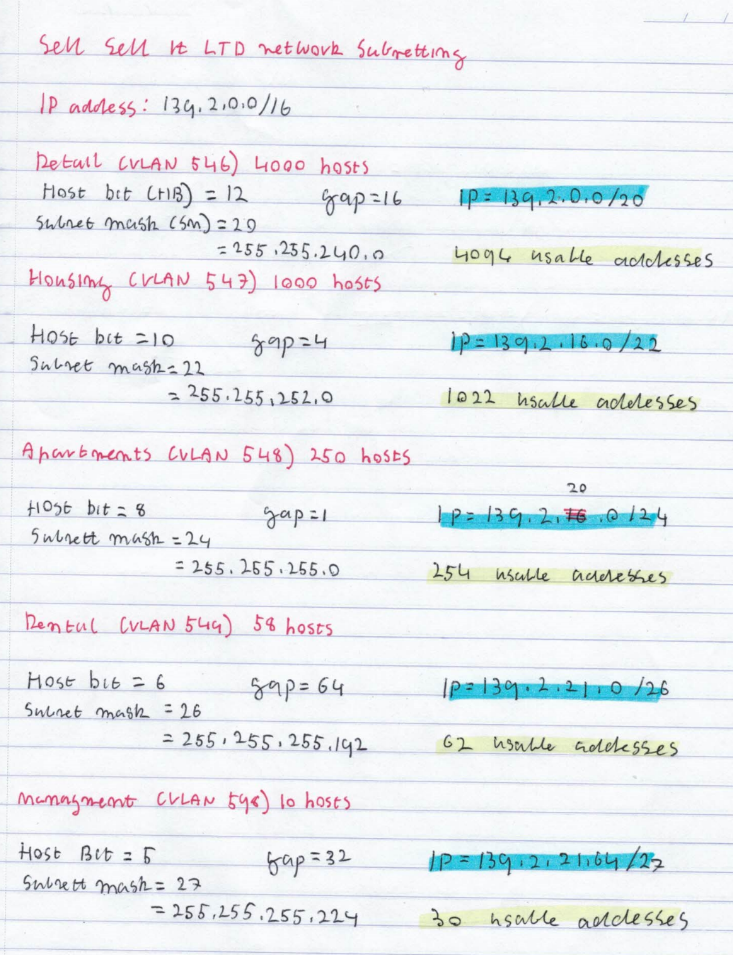 Sell Sell It LTD network Subnetting
IP address: 139.2.0.0/16
Retail (VLAN 546) 4000 hosts
Host bit (HB) = 12 gap=16 IP= 139.2.0.0/20
Subnet mask (SM) = 20
= 255.255.240.0 4094 usable addresses
Housing (VLAN 547) 1000 hosts
Host bit =10 gap=4 IP= 139.2.16.0/22
Subnet mask= 22
= 255.255.252.0 1022 usable addresses
Apartments (VLAN 548) 250 hosts
20
Host bit = 8 gap=1 IP= 139.2.16.0/24
Subnett mask = 24
= 255.255.255.0 254 usable addresses
Rental (VLAN 549) 58 hosts
Host bit = 6 gap= 64 IP=139.2.21.0/26
Subnet mask = 26
= 255.255.255.192 62 usable addresses
Managment (VLAN 598) 10 hosts
Host Bit = 5 gap=32 IP=139.2.21.64/27
Subnett mask= 27
= 255.255.255.224 30 usable addresses